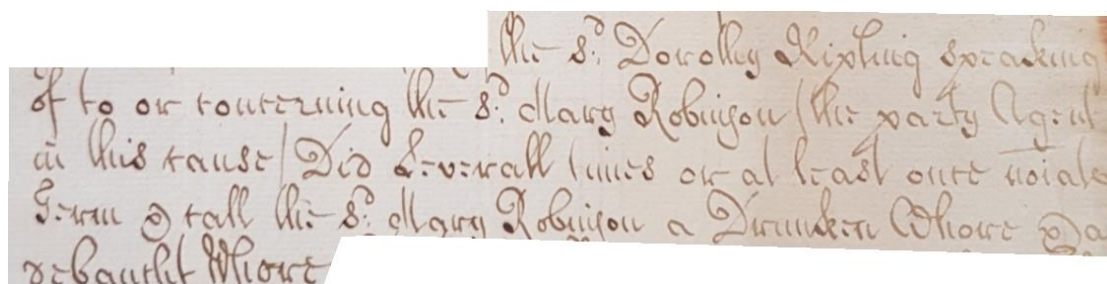 the sd: Dorothy Kipling speaking
of to or concerning the sd: Mary Robinson (the party Agent
in this cause) Did severall times or at least once noiate
Term & call the sd: Mary Robinson a Drunken Whore & a
debaucht Whore